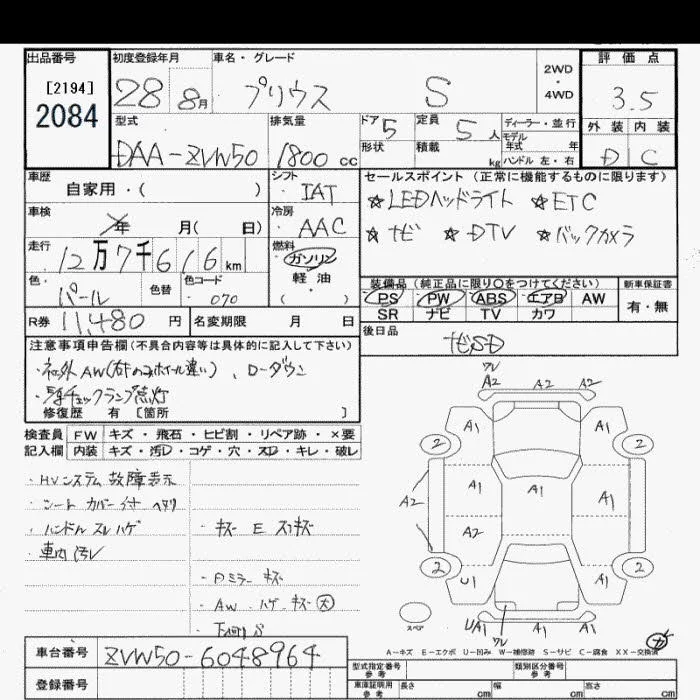 出品番号 初度登録年月 車名・グレード 評価点
[2194]
2084
28 8月 プリウス S 2WD・4WD 3.5
型式 排気量 ドア 5 定員 5人 ディーラー・並行 外装 内装
モデル年式 年
DAA-ZVW50 1800cc 形状 積載 kg ハンドル 左・右 D C
車歴 自家用・( ) シフト IAT セールスポイント(正常に機能するものに限ります)
☆LEDヘッドライト ☆ETC
車検 年 月( 日) 冷房 AAC
☆ナビ ☆DTV ☆バックカメラ
走行 12万7千616km 燃料 ガソリン 軽油・( )
色・パール 色替 色コード 070
装備品(純正品に限り○をつけてください) 新車保証書
PS PW ABS エアB AW 有・無
SR ナビ TV カワ
R券 11,480円 名変期限 月 日
後日品 ナビSD
注意事項申告欄(不具合内容等は具体的に記入して下さい)
・社外AW(右下のみホイール違い)、ローダウン
チェックランプ点灯
修復歴 有[箇所 ]
検査員 FW キズ・飛石・ヒビ割・リペア跡・×要
記入欄 内装 キズ・汚レ・コゲ・穴・スレ・キレ・破レ
・HVシステム故障表示
・シートカバー付 ヘタリ
・ハンドルスレハゲ
・車内汚レ
・キズ E スリキズ
・Dミラー キズ
・AW ハゲ キズ大
ワレ
A2 A2 A2
A1 A1
2 2
A1 A1 A1
A2 A2
2 2
U1 A1
UA1 A1 A1
ワレ
スペア
A-キズ E-エクボ U-凹み W-補修跡 S-サビ C-腐食 XX-交換済
車台番号 ZVW50-6048964
登録番号
型式指定番号 参考 類別区分番号 参考
車庫証明用 参考 長さ cm 幅 cm 高さ cm